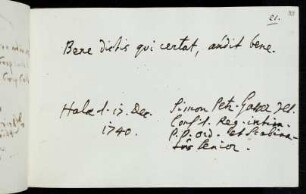 21.
Bene dictis qui certat, audit bene.
Halae d. 17. Dec.
1740.
Simon Petr. Gasser JCt.
Consil. Reg. intim.
P. P. ord. et Scabina-
tus Senior.